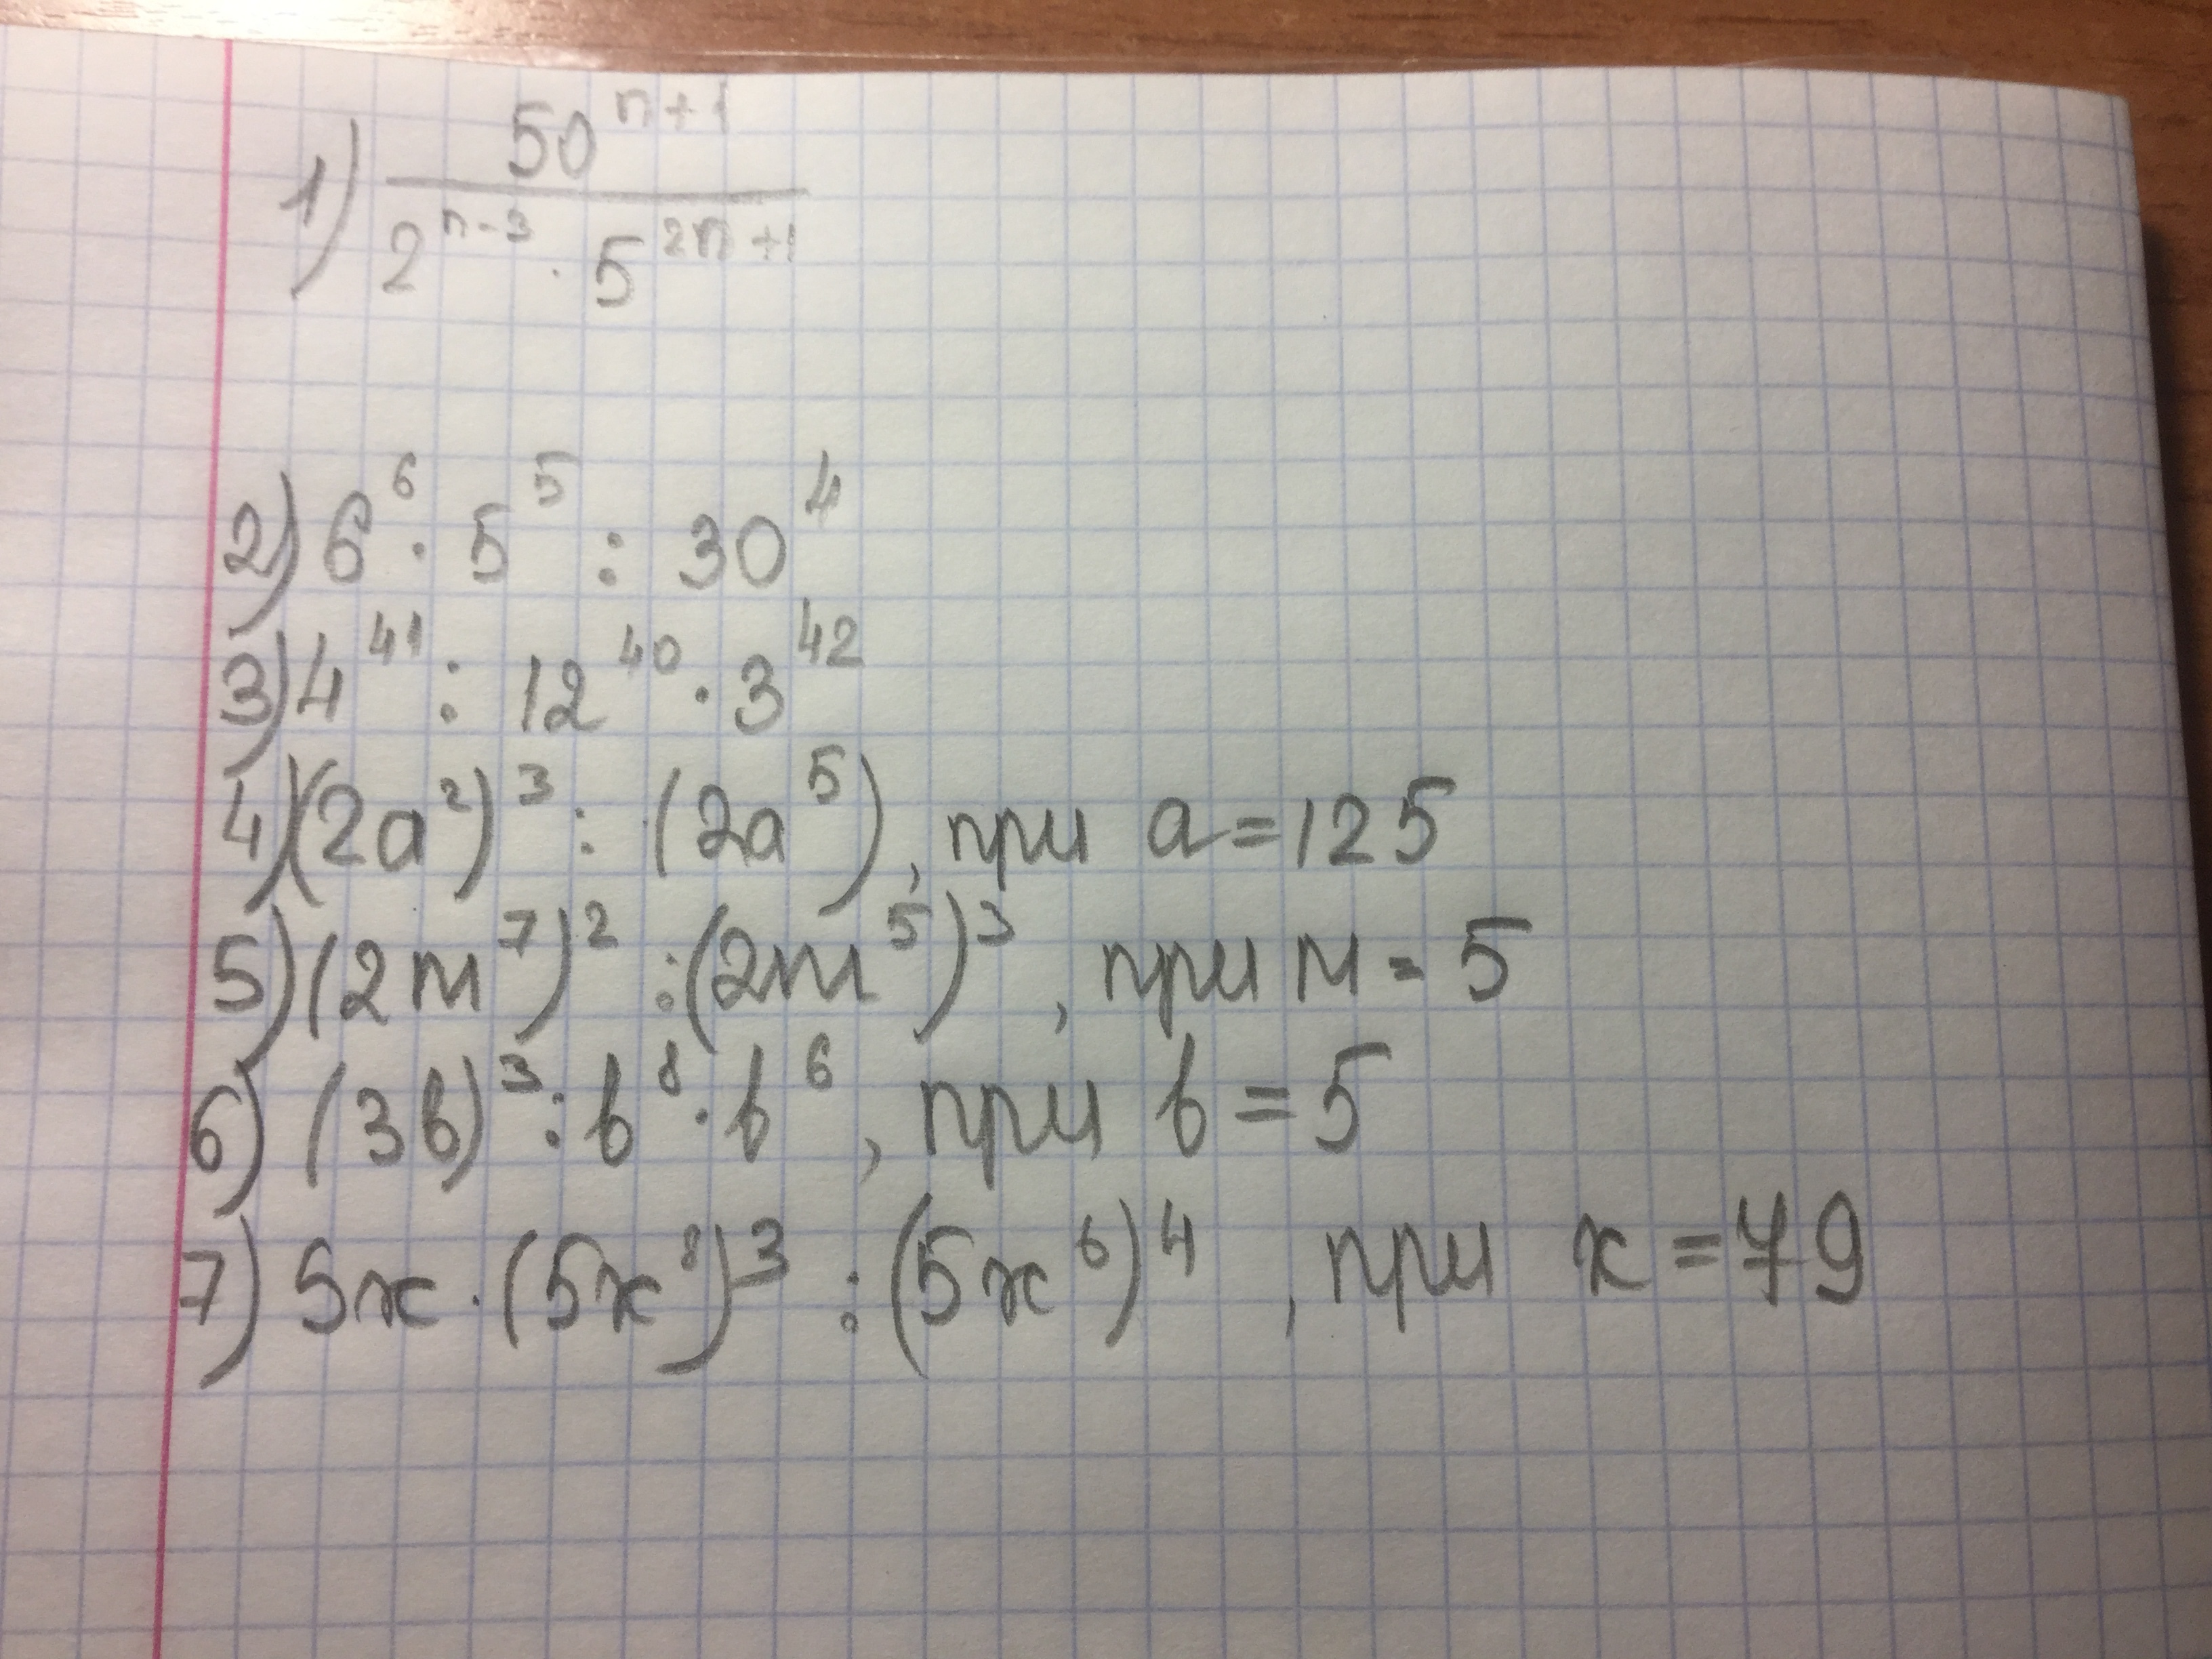 1) 50^(n+1) / (2^(n-3) · 5^(2n+1))
2) 6^6 · 5^5 : 30^4
3) 4^41 : 12^40 · 3^42
4) (2a^2)^3 : (2a^5), при a=125
5) (2m^7)^2 : (2m^5)^3, при м = 5
6) (3b)^3 : b^8 · b^6, при b = 5
7) 5x · (5x^8)^3 : (5x^6)^4, при x = 79